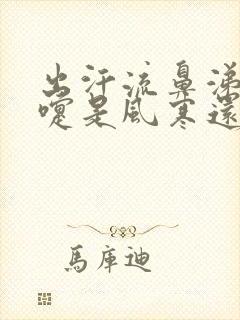 出汗流鼻涕
嚏是風寒還
馬庫迪